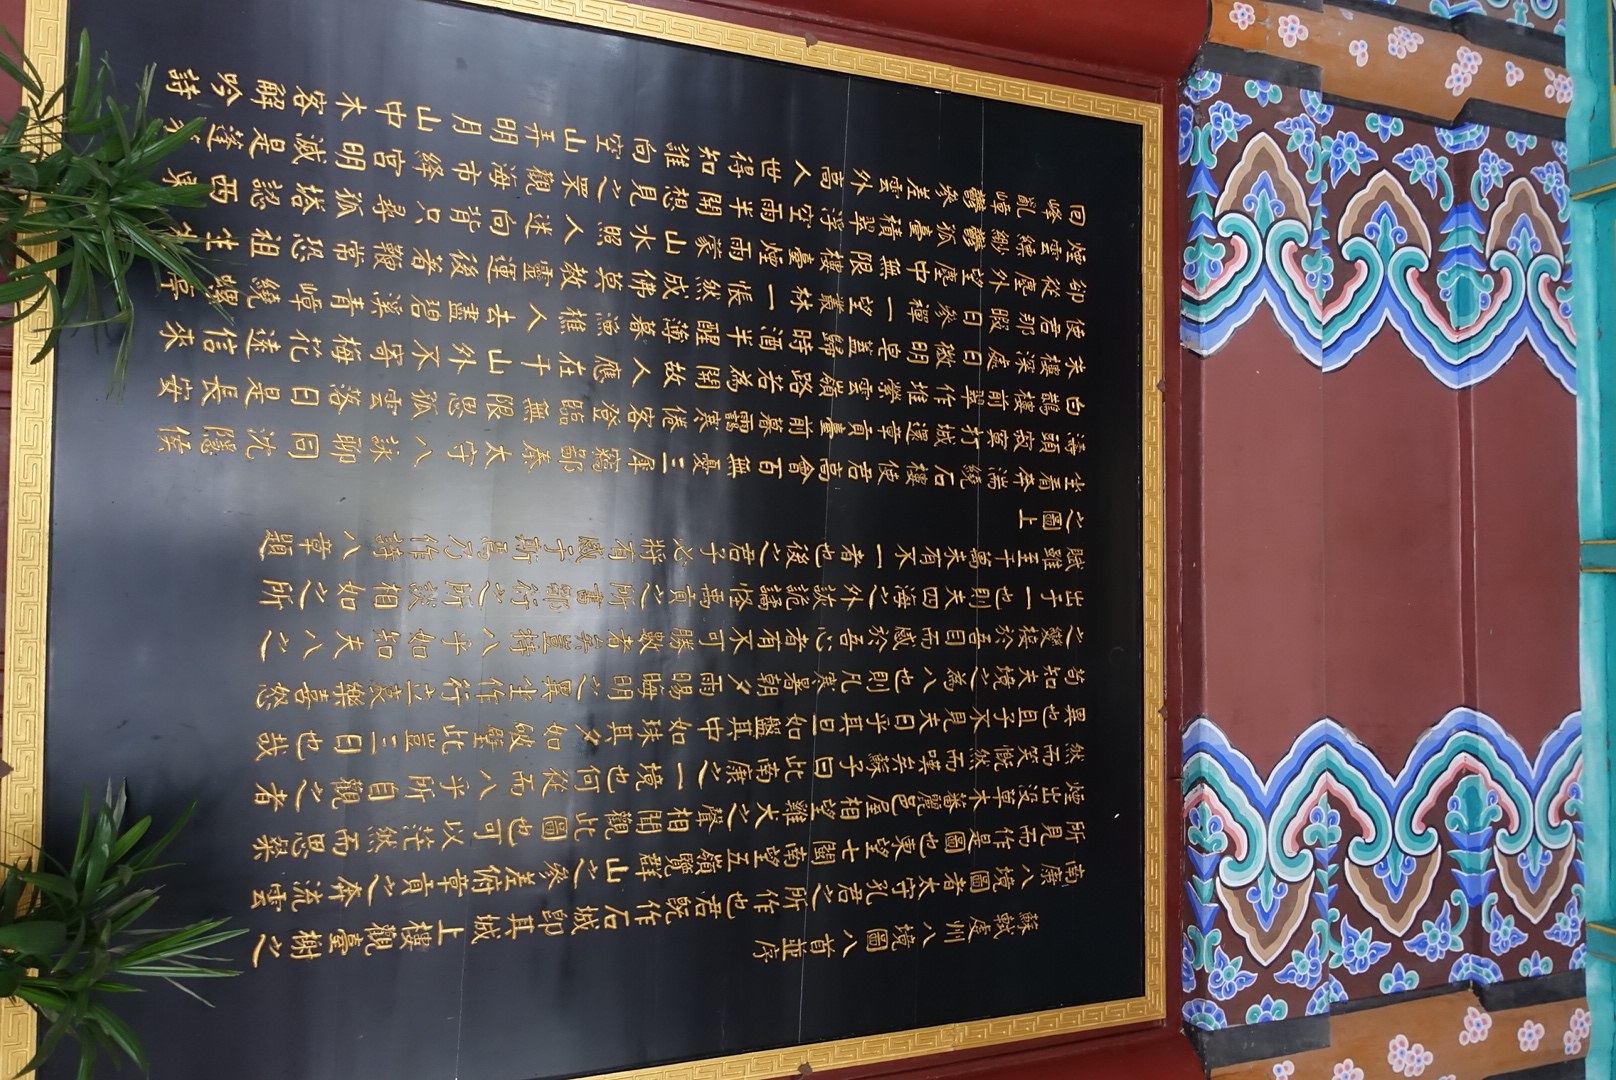 蘇軾虔州八境圖八首並序
南康八境圖者太守孔君之所作也君既作石城即其城上樓觀臺榭之
所見而作是圖也東望七閩南望五嶺覽群山之參差俯章貢之奔流雲
煙出沒草木蕃麗邑屋相望雞犬之聲相聞觀此圖也可以茫然而思粲
然而笑慨然而嘆矣蘇子曰此南康之一境也何從而八乎所自觀之者
異也且子不見夫日乎其旦如盤其中如珠其夕如破璧此豈三日也哉
苟知夫境之為八也則凡寒暑朝夕雨暘晦明之異坐作行立哀樂喜怒
之變接於吾目而感於吾心者有不可勝數者矣豈特八乎如知夫八之
出乎一也則夫四海之外詼詭譎怪禹貢之所書鄒衍之所談相如之所
賦雖至千萬未有不一者也後之君子必將有感于斯焉乃作詩八章題
之圖上
坐看奔湍繞石樓使君高會百無憂三犀竊鄙秦太守八詠聊同沈隱侯
濤頭寂寞打城還章貢臺前暮靄寒倦客登臨無限思孤雲落日是長安
白鵲樓前翠作堆縈雲嶺路若為開故人應在千山外不寄梅花遠信來
朱樓深處日微明皂蓋歸時酒半醒薄暮漁樵人去盡碧溪青嶂繞螺亭
使君那暇日參禪一望叢林一悵然成佛莫教靈運後著鞭常恐祖生先
卻從塵外望塵中無限樓臺煙雨蒙山水照人迷向背只尋孤塔認西東
煙雲縹緲鬱孤臺積翠浮空雨半開想見之罘觀海市絳宮明滅是蓬萊
回峰亂嶂鬱參差雲外高人世得知誰向空山弄明月山中木客解吟詩